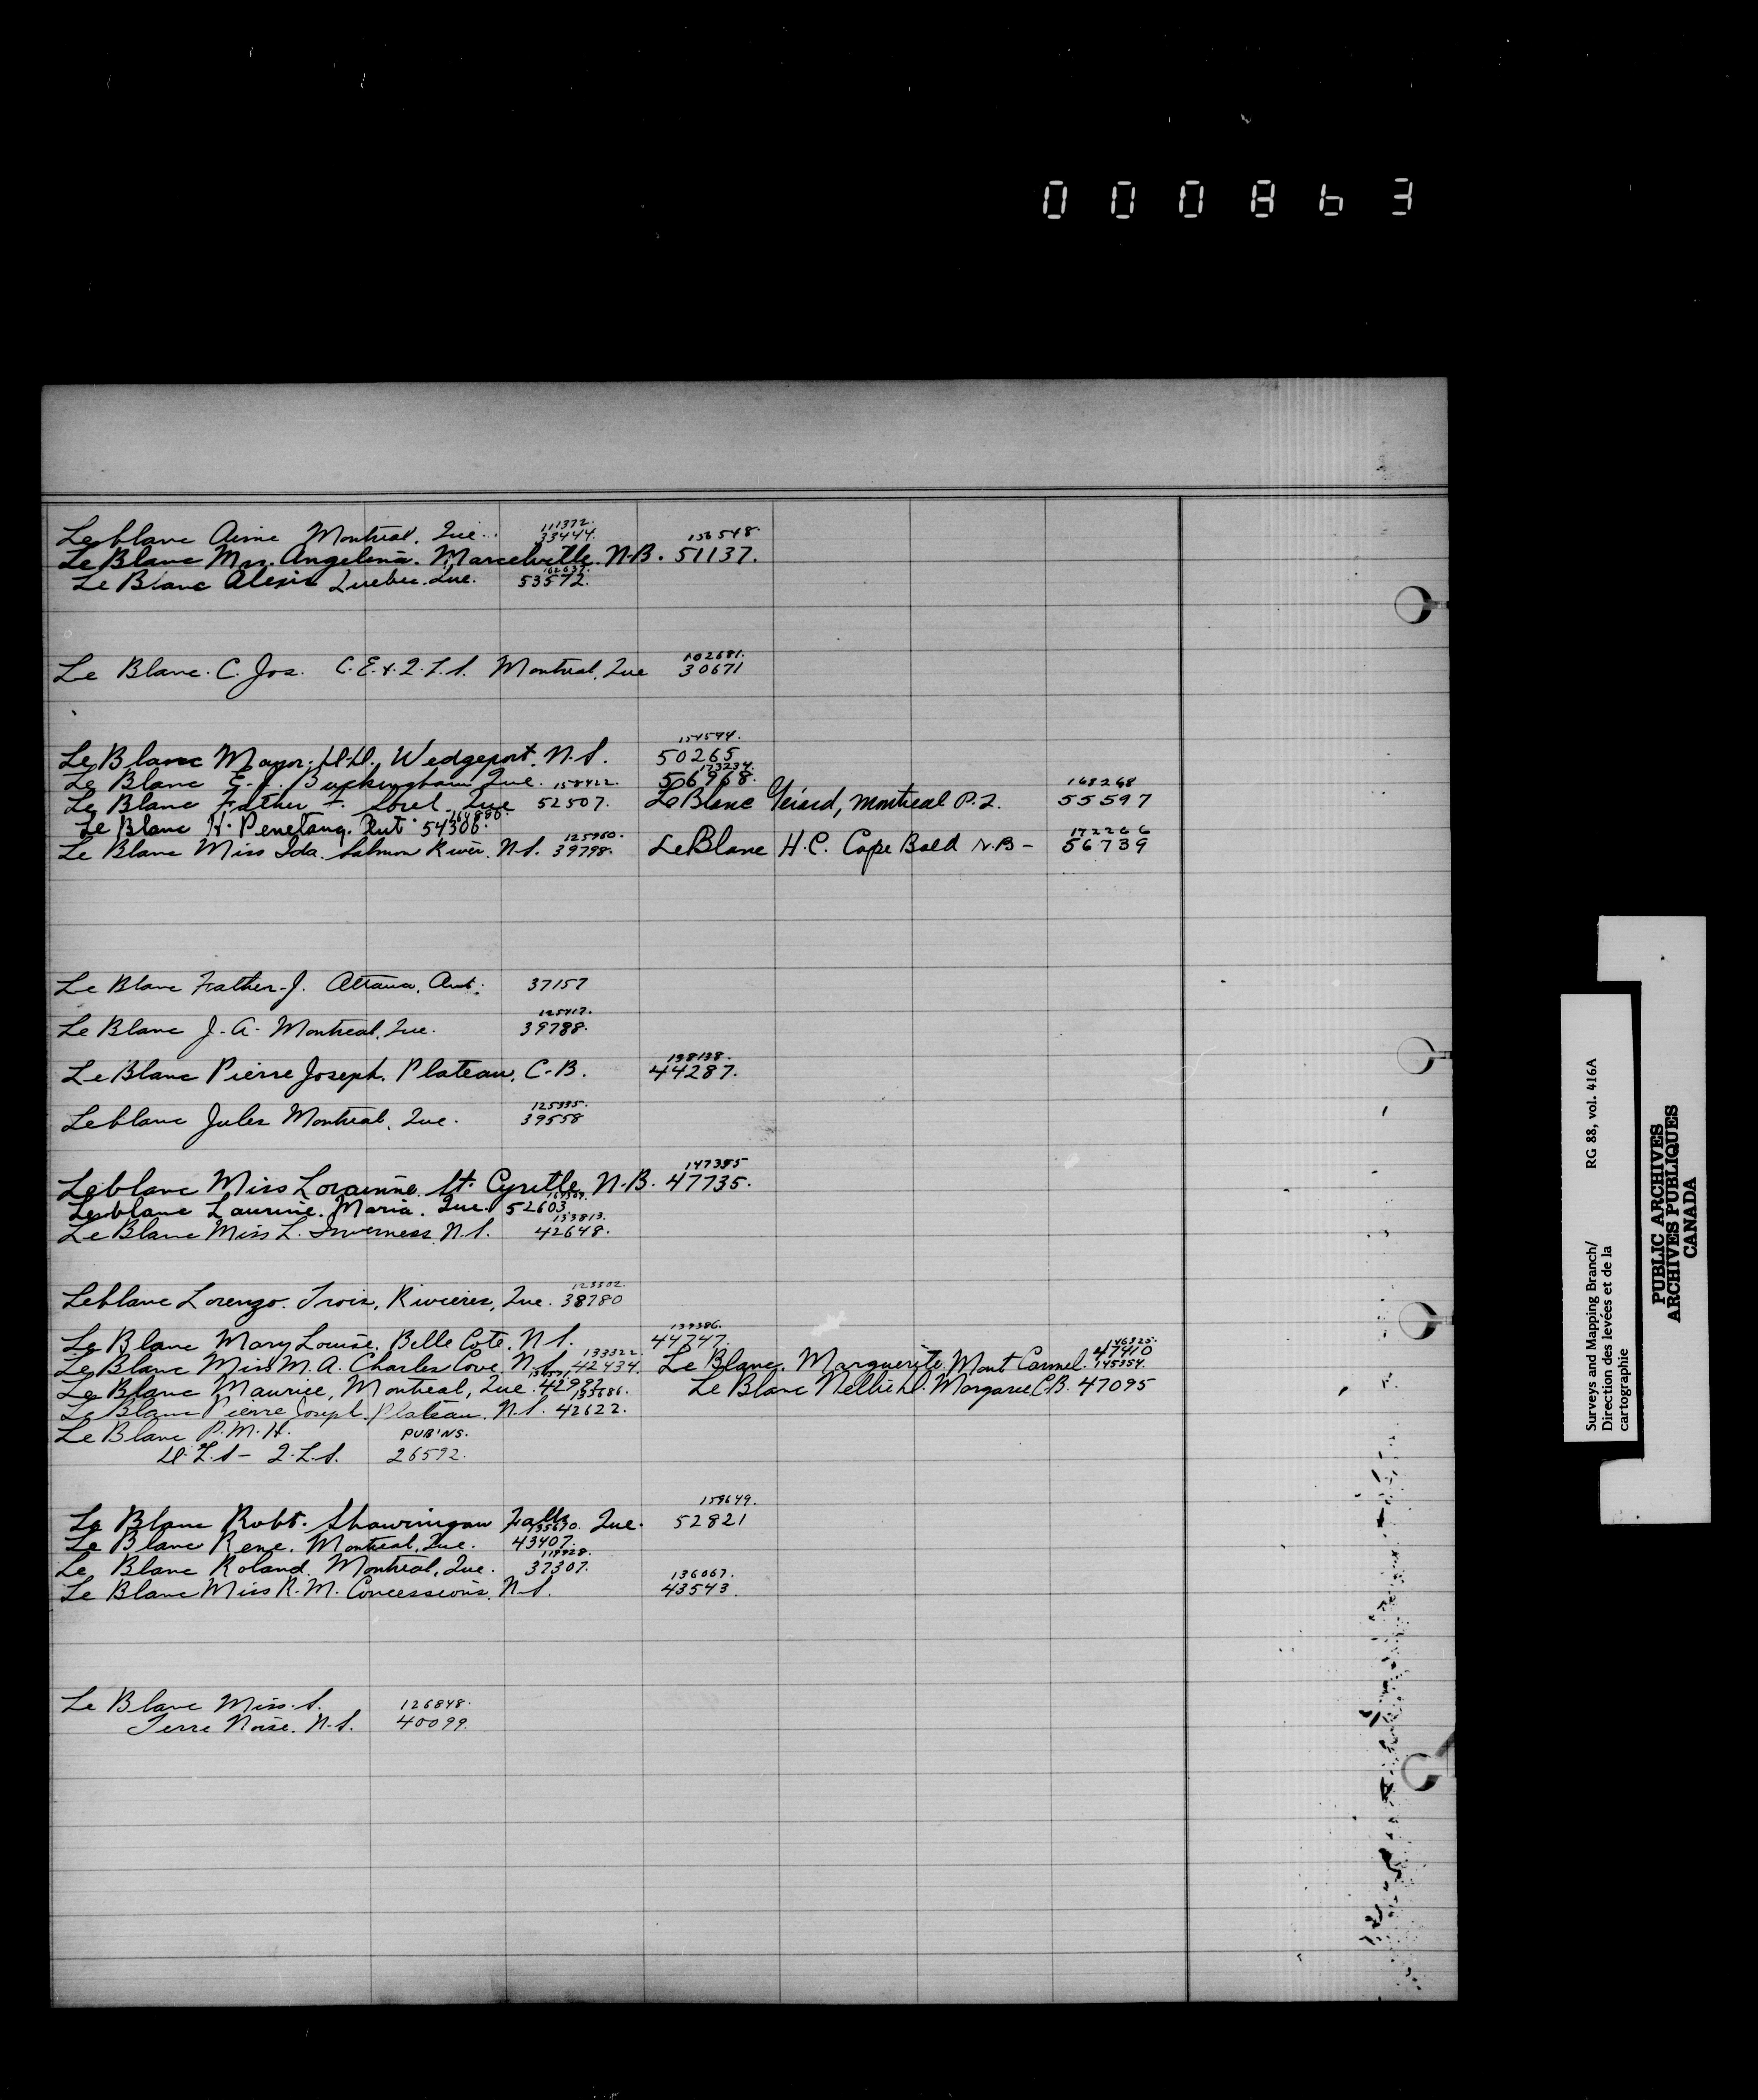 000863
Leblanc Aime Montreal, Que. 111372. 33444.
Le Blanc Mrs. Angelina. Marcelville. N.B. 156548. 51137.
Le Blanc Alexis Quebec. Que. 162637. 53572.
Le Blanc. C. Jos. C.E. & Q.L.S. Montreal, Que 102681. 30671
Le Blanc Mayor. Wedgeport. N.S. 154594. 50265
Le Blanc E. J. Buckingham Que. 173234. 56968.
Le Blanc Father F. Sorel. Que 158422. 52507.
Le Blanc Gerard, Montreal P.Q. 168268 55597
Le Blanc H. Penetang. Ont 54306.
Le Blanc Miss Ida. Salmon River. N.S. 125960. 39798.
Le Blanc H.C. Cape Bald N.B - 172266 56739
Le Blanc Father J. Ottawa, Ont. 37157
Le Blanc J. A. Montreal, Que. 125917. 39788.
Le Blanc Pierre Joseph. Plateau, C.B. 138138. 44287.
Leblanc Jules Montreal, Que. 125335. 39558
Leblanc Miss Lorainne. St. Cyrille N.B. 147355 47735.
Leblanc Laurine. Maria. Que. 52603
Le Blanc Miss L. Inverness N.S. 133813. 42648.
Leblanc Lorenzo. Trois, Rivieres, Que. 123302. 38780
Le Blanc Mary Louise. Belle Cote. N.S. 139386. 44747.
Le Blanc Miss M. A. Charles Cove N.S. 133322 42434.
Le Blanc. Marguerite. Mont Carmel. 146325. 47410
Le Blanc Maurice, Montreal, Que. 42992
Le Blanc Nellie D. Margaree C.B. 145354. 47095
Le Blanc Pierre Joseph. Plateau. N.S. 133686. 42622.
Le Blanc P. M. H. PUB'NS.
D.L.S - Q.L.S. 26592.
Le Blanc Robt. Shawinigan Falls Que. 159649. 52821
Le Blanc Rene. Montreal, Que. 135670. 43407.
Le Blanc Roland. Montreal, Que. 119928. 37307.
Le Blanc Miss R. M. Concessions, N.S. 136067. 43543.
Le Blanc Miss. S. 126848.
Terre Noire. N.S. 40099.
Surveys and Mapping Branch/ RG 88, vol. 416A
Direction des levées et de la
cartographie
PUBLIC ARCHIVES
ARCHIVES PUBLIQUES
CANADA